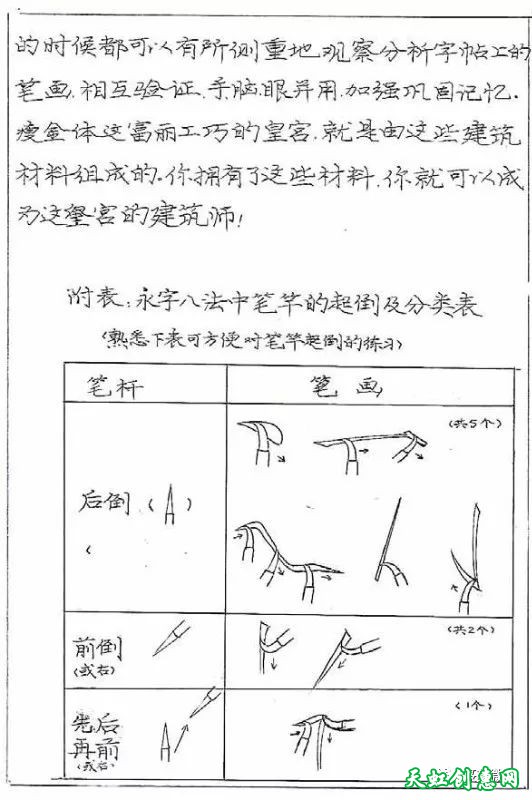 的时候都可以有所侧重地观察分析字帖上的
笔画.相互验证.手脑眼并用.加强巩固记忆.
瘦金体这富丽工巧的皇宫.就是由这些建筑
材料组成的。你拥有了这些材料.你就可以成
为这皇宫的建筑师!
附表:永字八法中笔竿的起倒及分类表
(熟悉下表可方便对笔竿起倒的练习)
笔杆 笔画
后倒( )
(共5个)
前倒
(或右)
(共2个)
先后
再前
(或右)
(1个)
天虹创意网